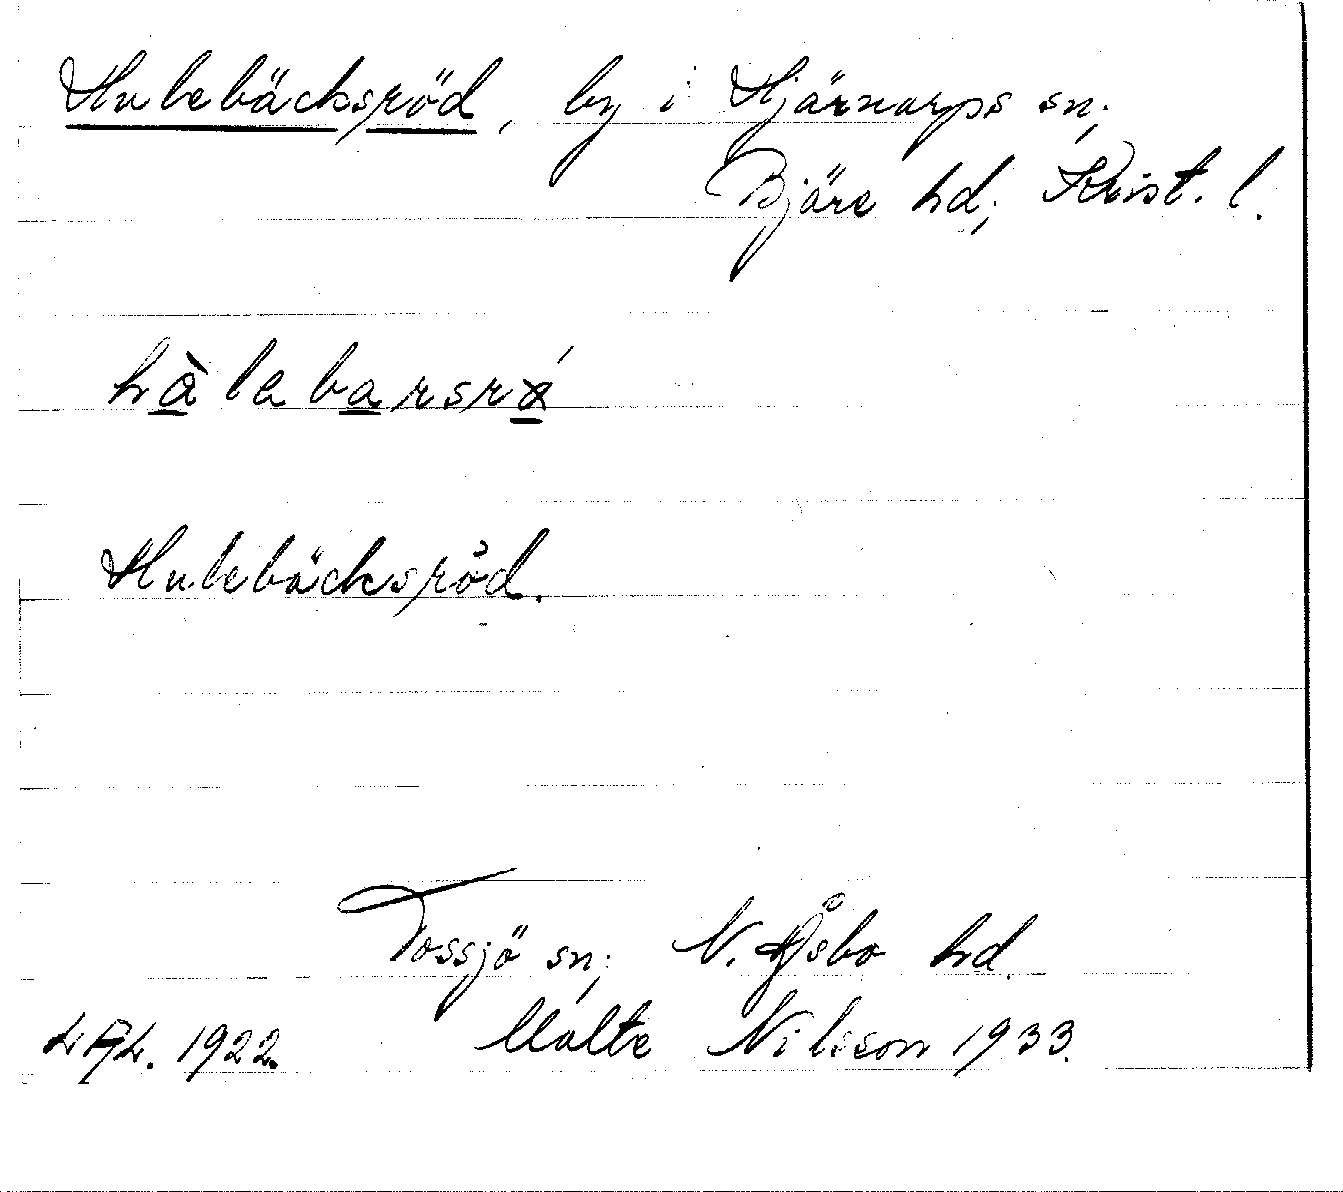 Hulebäcksröd, by i Hjärnarps sn;
Bjäre hd; Krist. l.
hàlebarsrǿ
Hulebäcksröd.
Tossjö sn; N. Åsbo hd.
1922. Malte Nilsson 1933.